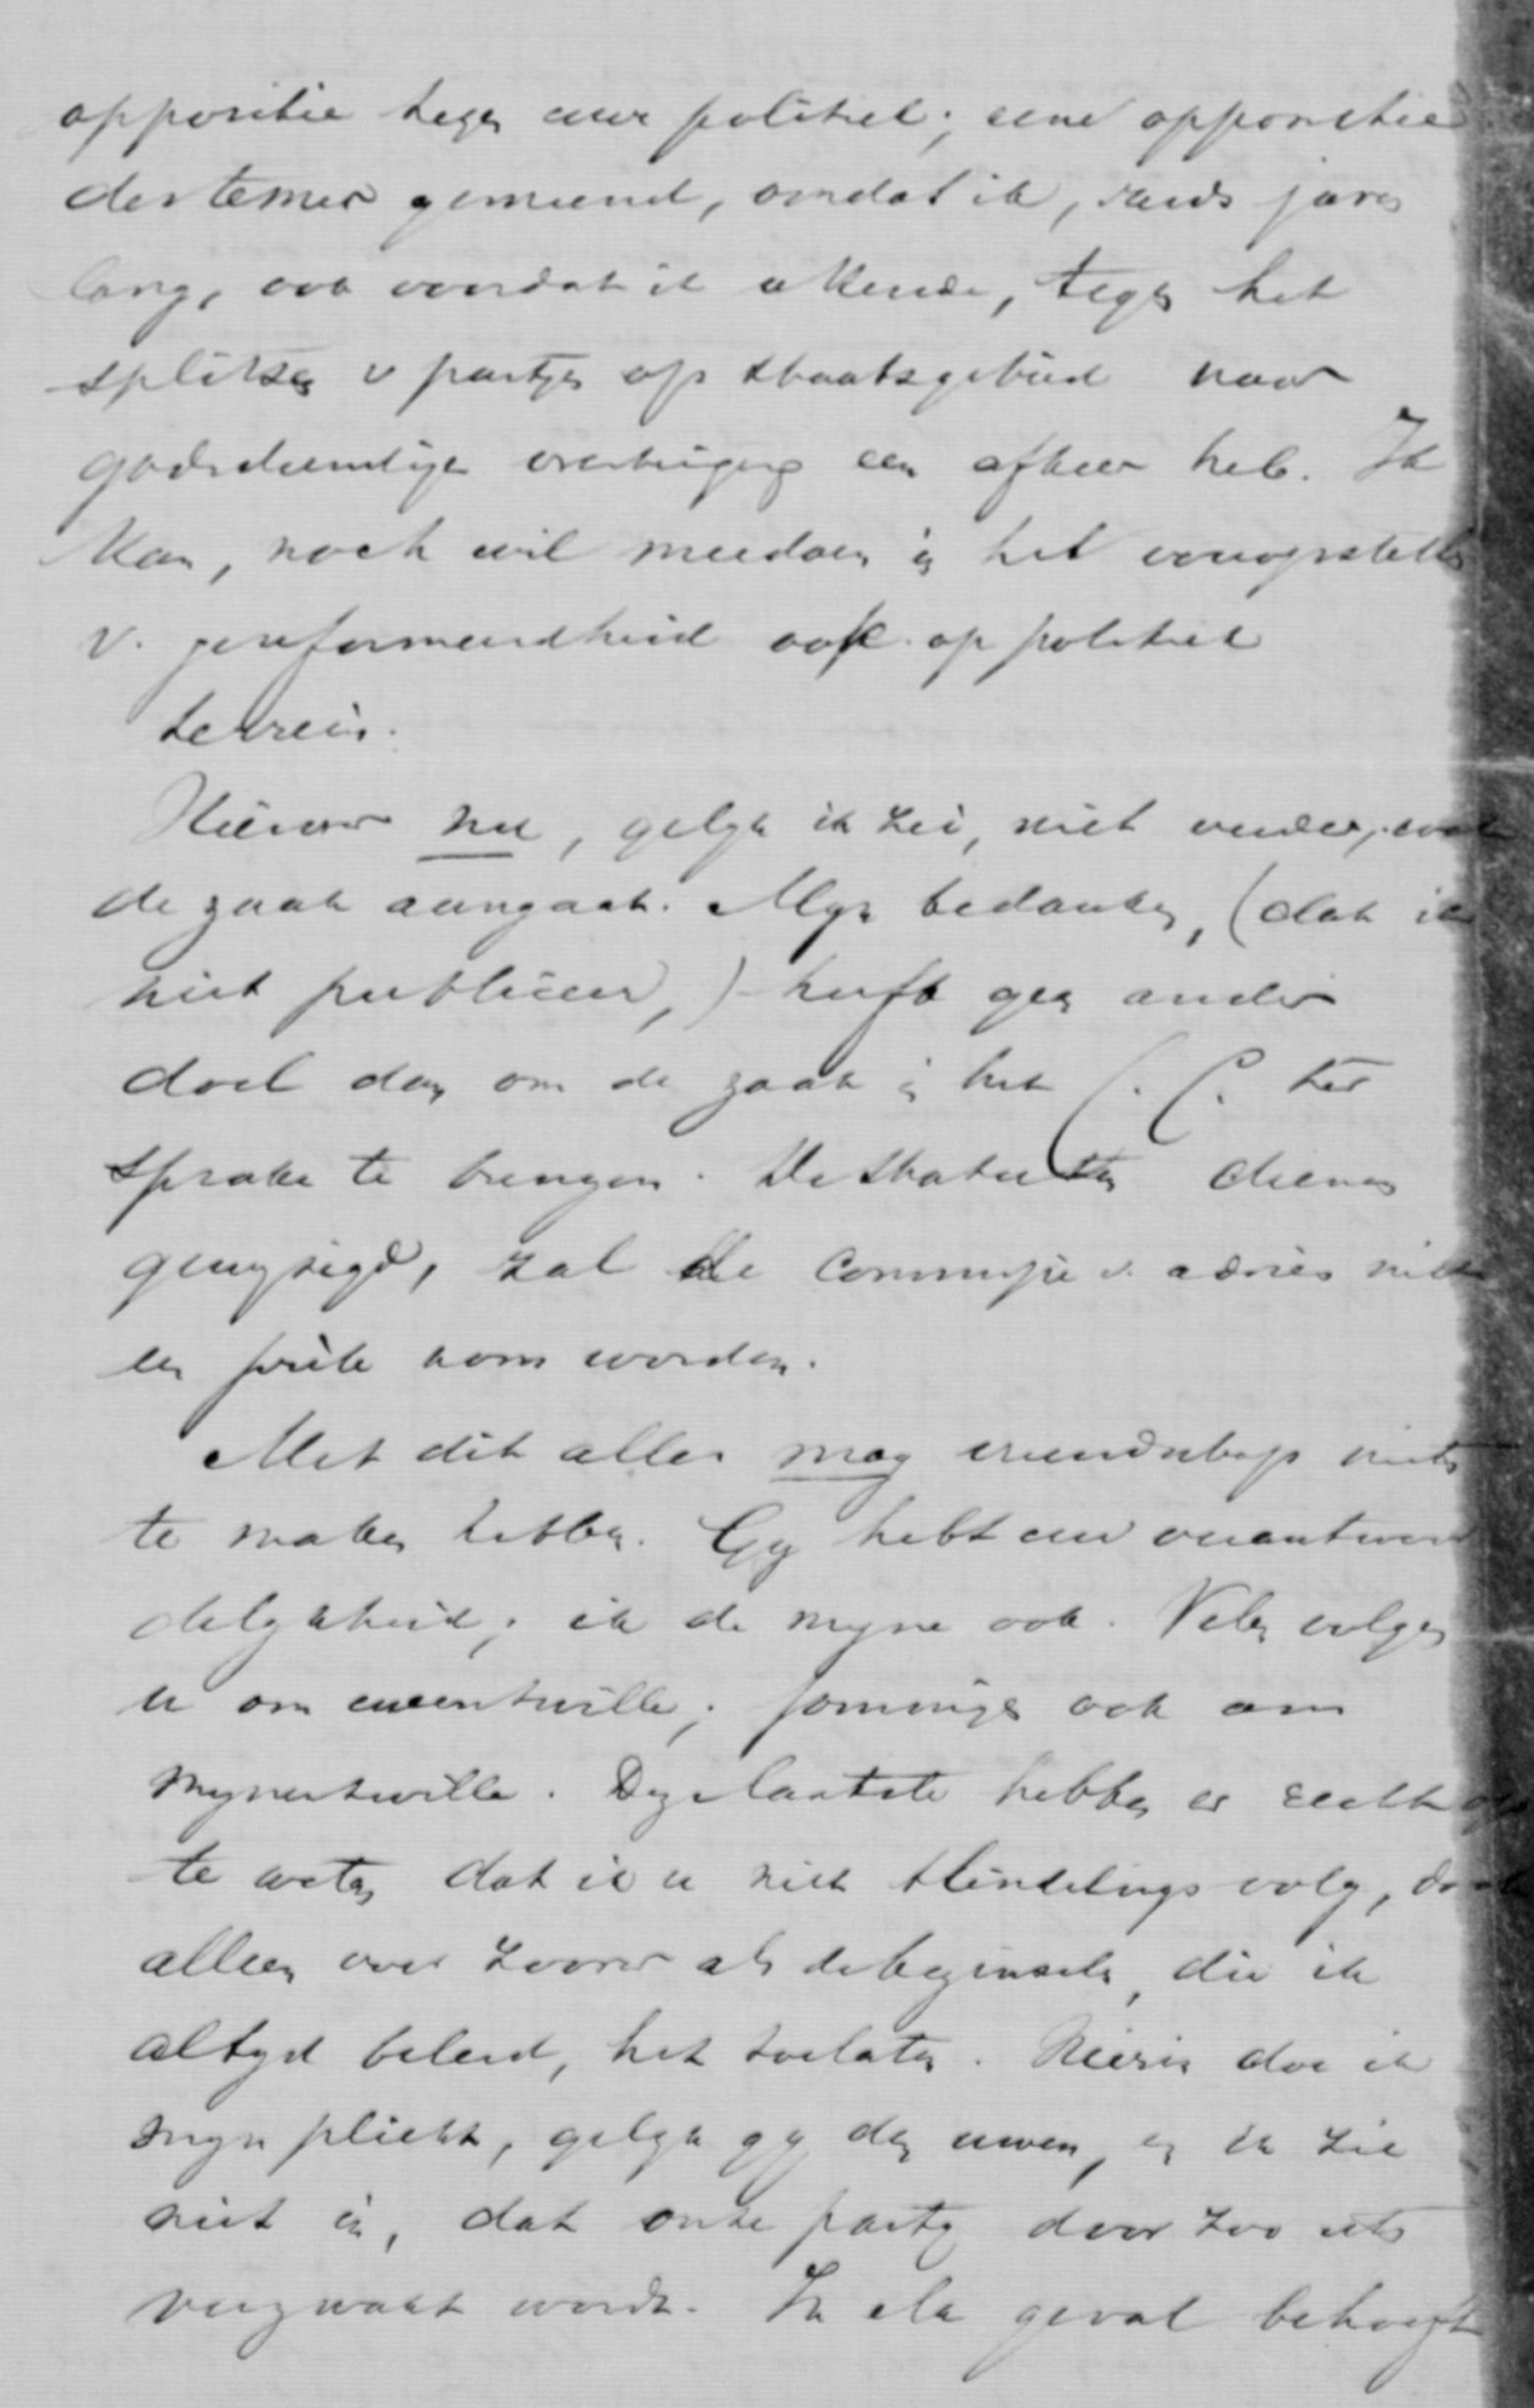 oppositie tegen uwe politiek; eene oppositie
des te meer gemeend, omdat ik, reeds jaren
lang, ook voordat ik u kende, tegen het
splitsen v partyen op staatsgebied naar
godsdienstige overtuiging een afkeer heb. Ik
kan, noch wil meedoen in het vooropstellen
v. gereformeerdheid ook op politiek
terrein.
Hierover nu, gelyk ik zei, niet verder, wat
de zaak aangaat. Myn bedanken, (dat ik
niet publiceer,) heeft geen ander
doel dan om de zaak in het C. C. ter
sprake te brengen. De statuten dienen
gewysigd, zal de Commissie v. advies niet
en forite kom worden.
Met dit alles mag vriendschap niets
te maken hebben. Gy hebt uw verantwoor
delykheid; ik de myne ook. Velen volgen
u om uwentwille; sommigen ook om
mynentwille. Deze laatste hebben er recht op
te weten dat ik u niet blindelings volg, doch
alleen voor zoover als de beginselen, die ik
altyd beleed, het toelaten. Hierin doe ik
myn plicht, gelyk gy den uwen, en ik zie
niet in, dat onze party door zoo iets
verzwakt wordt. In elk geval behoeft